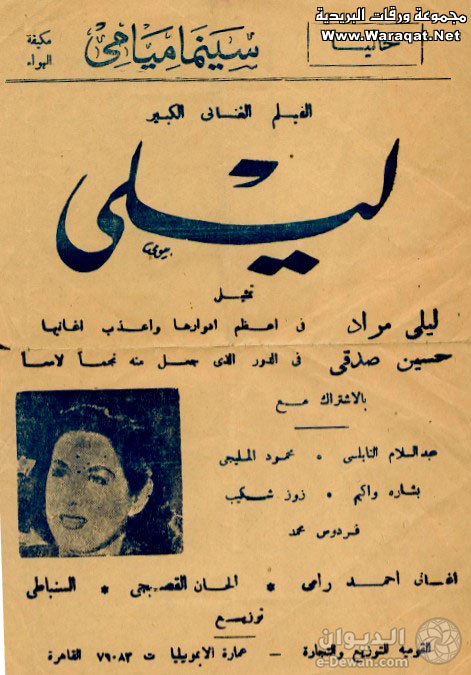 مجموعة ورقات البريدية
www.Waraqat.Net
حاليا
سينما ميامى
مكيفة
الهواء
الفيلم الغنائى الكبير
ليلى
تمثيل
ليلى مراد فى اعظم ادوارها واعذب اغانيها
حسين صدقى فى الدور الذى جعل منه نجماً لامعاً
بالاشتراك مع
عبدالسلام النابلسى • محمود المليجى
بشاره واكيم • زوز شكيب
فردوس محمد
اغانى احمد رامى * الحان القصبجى * السنباطى
توزيع
القومية للتوزيع والتجارة – عمارة الايموبيليا ت ٧٦٠٨٣ القاهرة
الديوان
e-Dewan.com